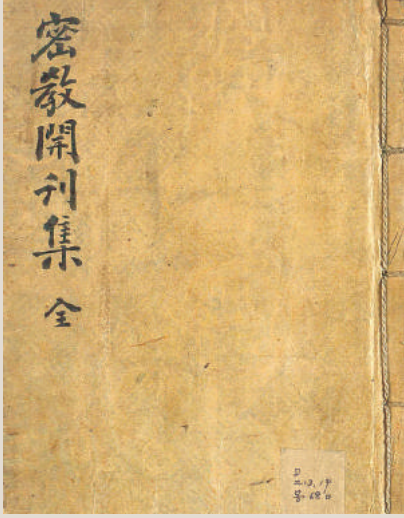 密教開刊集 全